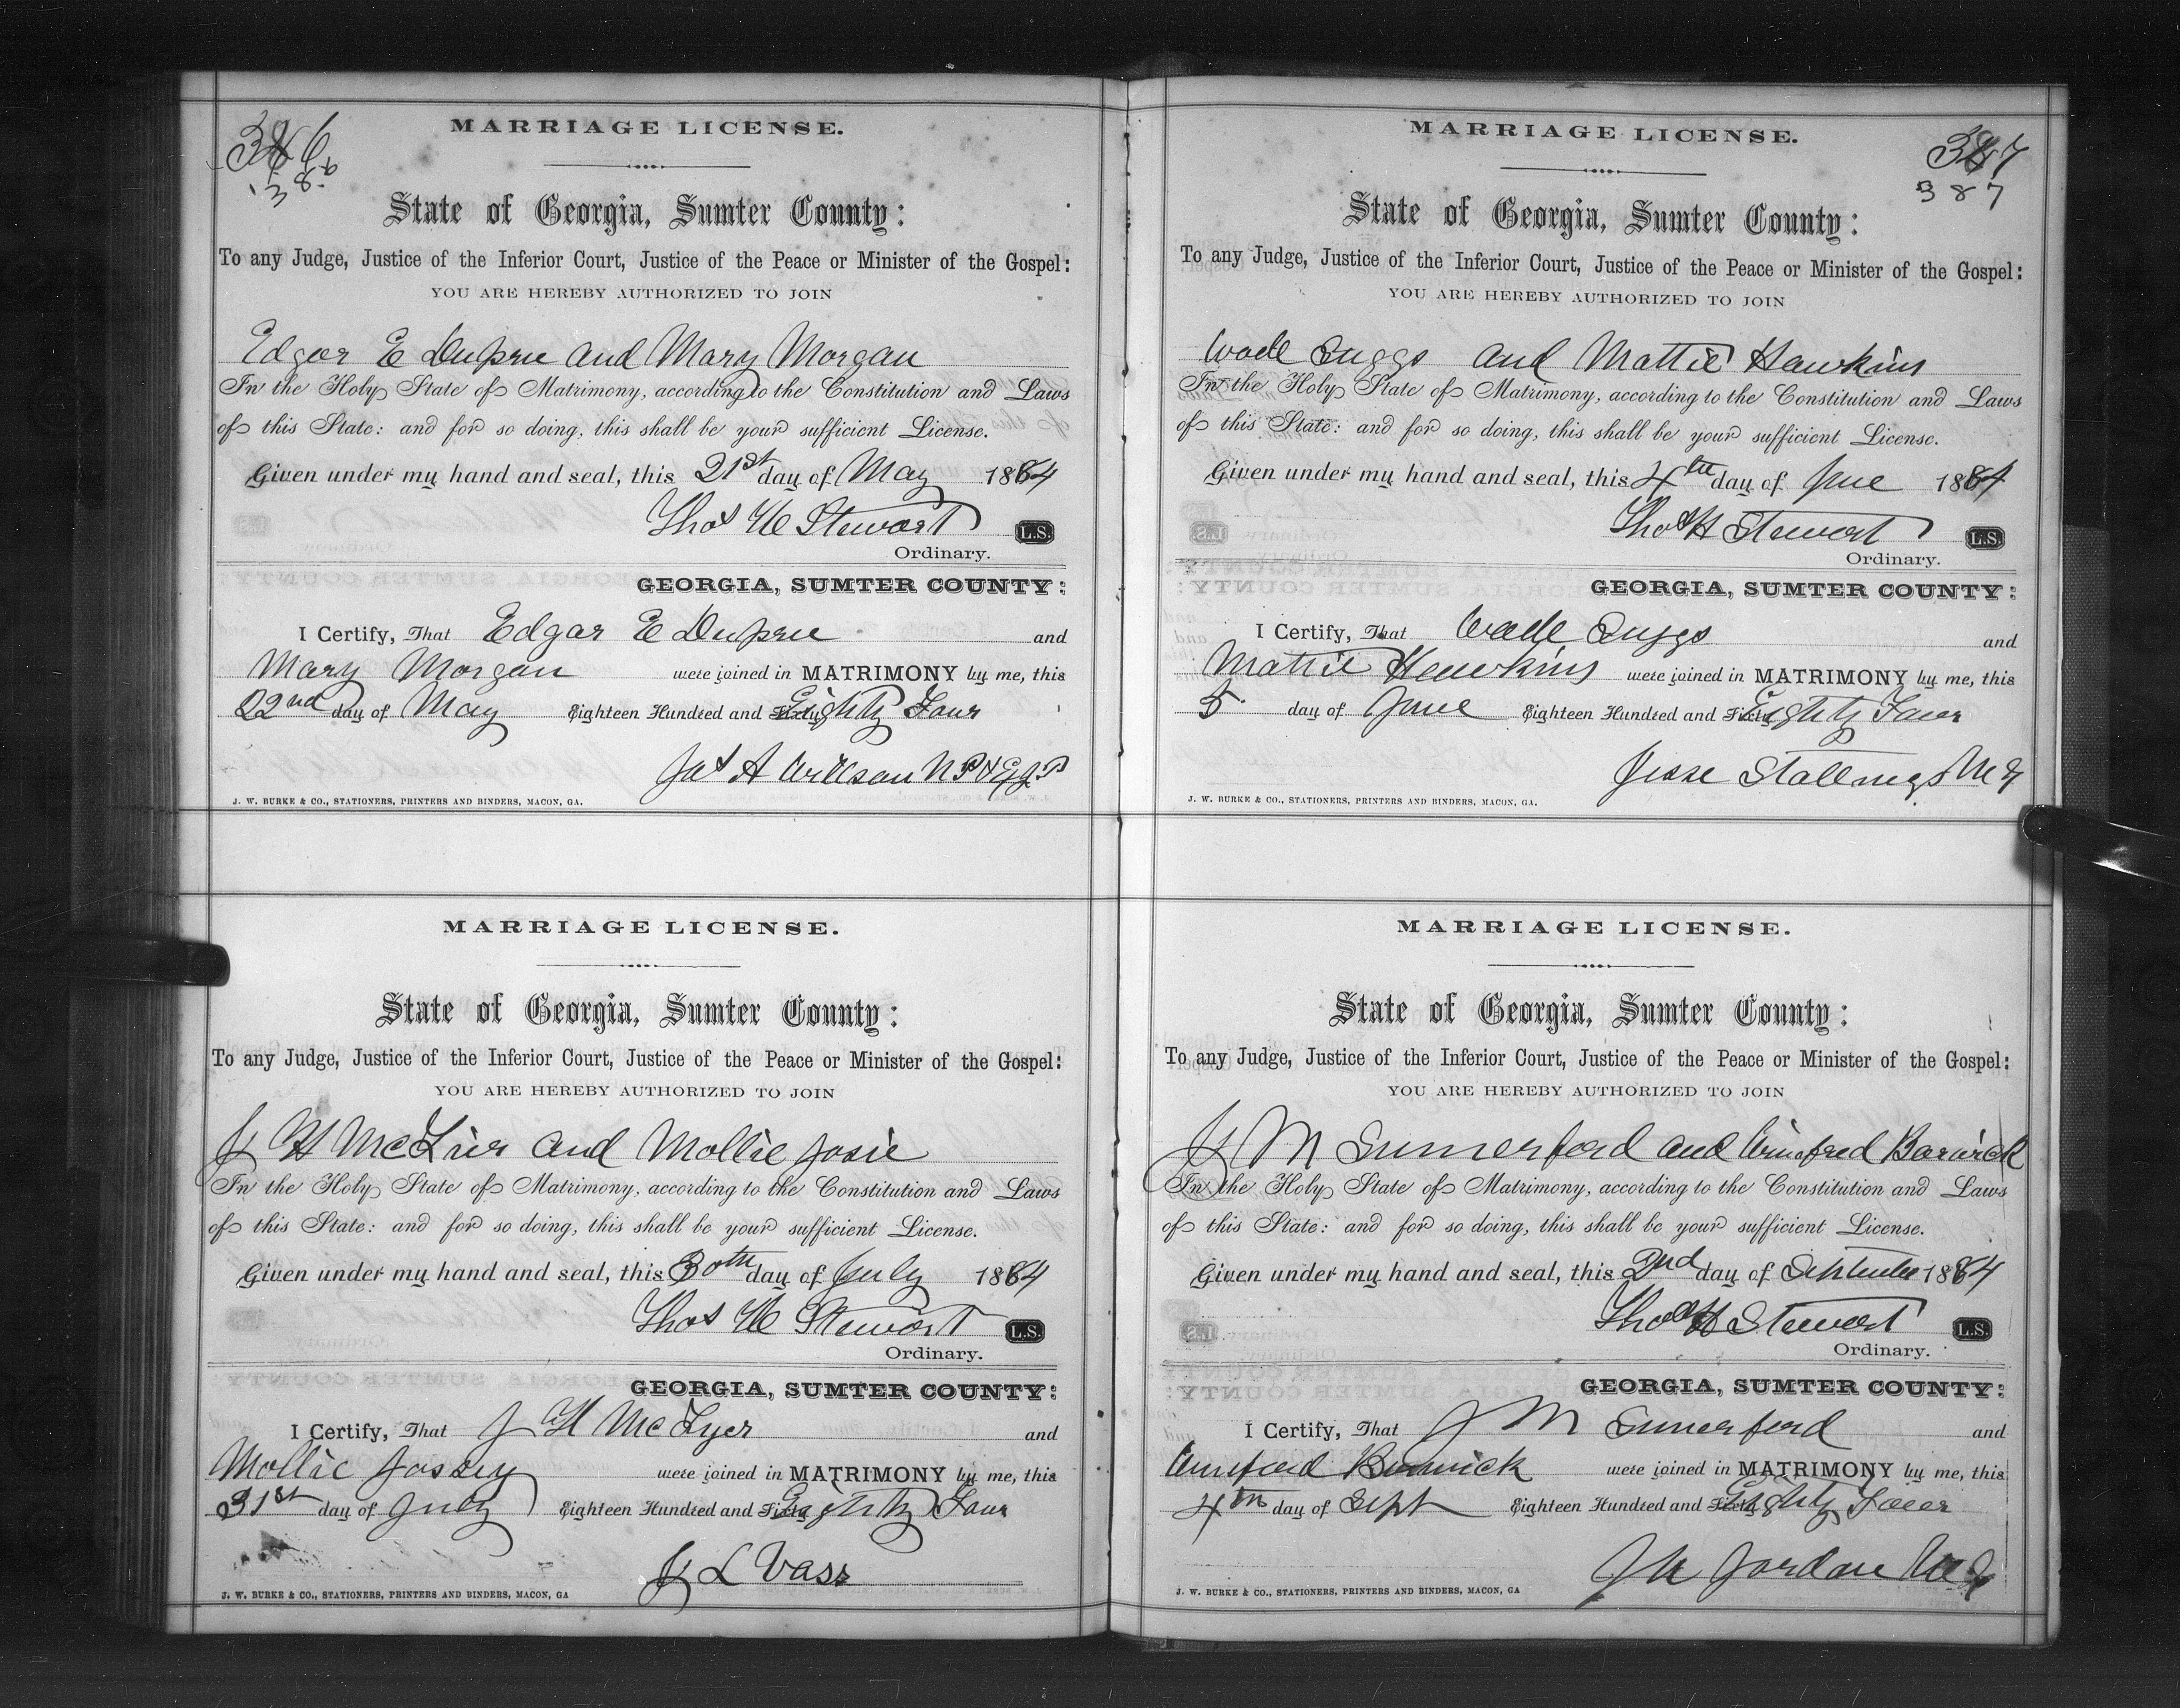 386
386
MARRIAGE LICENSE.
State of Georgia, Sumter County:
To any Judge, Justice of the Inferior Court, Justice of the Peace or Minister of the Gospel:
YOU ARE HEREBY AUTHORIZED TO JOIN
Edgar E Dupree and Mary Morgan
In the Holy State of Matrimony, according to the Constitution and Laws
of this State: and for so doing, this shall be your sufficient License.
Given under my hand and seal, this 21st day of May 1884
Thos H Stewart L.S.
Ordinary.
GEORGIA, SUMTER COUNTY:
I Certify, That Edgar E Dupree and
Mary Morgan were joined in MATRIMONY by me, this
22nd day of May Eighteen Hundred and Sixty Eighty Four
Jas A Wilson N P & Ex J P
J. W. BURKE & CO., STATIONERS, PRINTERS AND BINDERS, MACON, GA.
MARRIAGE LICENSE.
State of Georgia, Sumter County:
To any Judge, Justice of the Inferior Court, Justice of the Peace or Minister of the Gospel:
YOU ARE HEREBY AUTHORIZED TO JOIN
J H McLier and Mollie Josie
In the Holy State of Matrimony, according to the Constitution and Laws
of this State: and for so doing, this shall be your sufficient License.
Given under my hand and seal, this 30th day of July 1884
Thos H Stewart L.S.
Ordinary.
GEORGIA, SUMTER COUNTY:
I Certify, That J H McLyer and
Mollie Jossey were joined in MATRIMONY by me, this
31st day of July Eighteen Hundred and Sixty Eighty Four
J L Vass
J. W. BURKE & CO., STATIONERS, PRINTERS AND BINDERS, MACON, GA
387
387
MARRIAGE LICENSE.
State of Georgia, Sumter County:
To any Judge, Justice of the Inferior Court, Justice of the Peace or Minister of the Gospel:
YOU ARE HEREBY AUTHORIZED TO JOIN
Wade Suggs and Mattie Hawkins
In the Holy State of Matrimony, according to the Constitution and Laws
of this State: and for so doing, this shall be your sufficient License.
Given under my hand and seal, this 4th day of June 1884
Thos H Stewart L.S.
Ordinary.
GEORGIA, SUMTER COUNTY:
I Certify, That Wade Suggs and
Mattie Hawkins were joined in MATRIMONY by me, this
5 day of June Eighteen Hundred and Sixty Eighty Four
Jesse Stallings M G
J. W. BURKE & CO., STATIONERS, PRINTERS AND BINDERS, MACON, GA.
MARRIAGE LICENSE.
State of Georgia, Sumter County:
To any Judge, Justice of the Inferior Court, Justice of the Peace or Minister of the Gospel:
YOU ARE HEREBY AUTHORIZED TO JOIN
J M Sumerford and Winefred Barwick
In the Holy State of Matrimony, according to the Constitution and Laws
of this State: and for so doing, this shall be your sufficient License.
Given under my hand and seal, this 2nd day of September 1884
Thos H Stewart L.S.
Ordinary.
GEORGIA, SUMTER COUNTY:
I Certify, That J M Sumerford and
Barwick were joined in MATRIMONY by me, this
4th day of Sept Eighteen Hundred and Sixty Eighty Four
Jordan M G
J. W. BURKE & CO., STATIONERS, PRINTERS AND BINDERS, MACON, GA